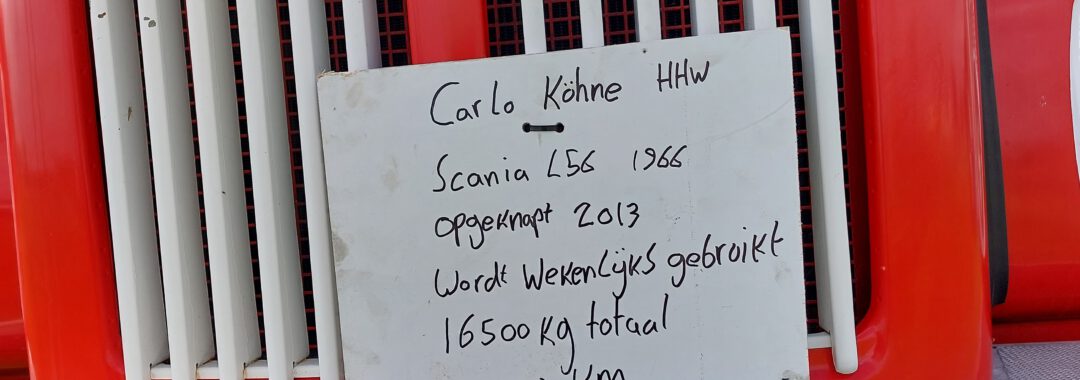 Carlo Köhne HHW
Scania L56 1966
opgeknapt 2013
Wordt Wekenlijks gebroikt
16500 kg totaal
Km